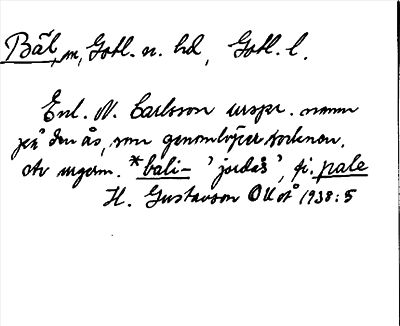 Bāl, m, Gotl. n. hd, Gotl. l.
Enl. N. Carlsson urspr. namn
på den ås, som genomlöper socknen.
Av urgerm. *bali- 'jordås', fi. pale
H. Gustavson OUoÅ 1938:5